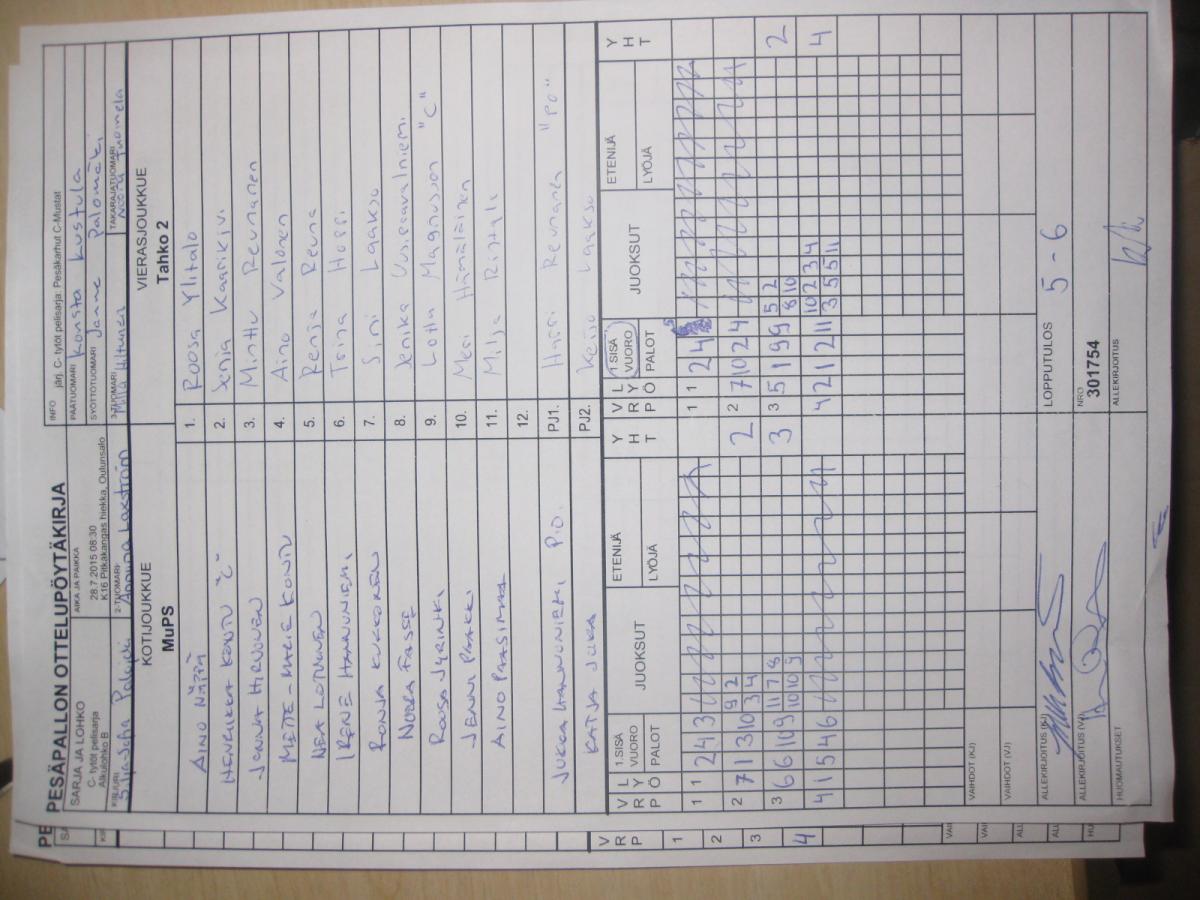 PESÄPALLON OTTELUPÖYTÄKIRJA
SARJA JA LOHKO
C- tytöt pelisarja
Alkulohko B
AIKA JA PAIKKA
28.7.2015 08:30
K16 Pitkäkangas hiekka, Oulunsalo
INFO järj. C- tytöt pelisarja: Pesäkarhut C-Mustat
PÄÄTUOMARI Konsta Kustula
SYÖTTÖTUOMARI Janne Palomäki
2-TUOMARI
3-TUOMARI Milla Hiltunen
TAKARAJATUOMARI Noora Tuomela
KOTIJOUKKUE
MuPS
VIERASJOUKKUE
Tahko 2
1. Roosa Ylitalo
HENRIIKKA KONTU "C"
2. Senja Kaarikivi
JONNA HIRVONEN
3. Minttu Reunanen
METTE-MARIE KONTU
4. Aino Valonen
5. Renja Reuna
IRENE HANNUNIEMI
6. Triina Hoppi
RONJA KUKKONEN
7. Sini Laakso
NOORA FASSE
8. Jenika Uusisavalniemi
9. Lotta Magnusson "C"
JENNI PAAKKI
10. Meri Hämäläinen
AINO PAASIMAA
11. Milja Rintala
12.
JUKKA HANNONIEMI P.O.
PJ1. Harri Reunanen "PO"
KATJA JOKA
PJ2. Keijo Laakso
V R P
L Y Ö
1.SISÄ VUORO
PALOT
JUOKSUT
ETENIJÄ
LYÖJÄ
Y H T
V R P
L Y Ö
1.SISÄ VUORO
PALOT
JUOKSUT
ETENIJÄ
LYÖJÄ
Y H T
1 1 2 4 3
1 1 2 4
2 7 1 3 10 9 2 2
3 4
2 7 10 2 4
3 6 6 10 9 11 7 8 3
10 10 9
3 5 1 9 9 5 2 2
8 10
4 1 5 4 6
4 2 1 2 11 10 2 3 4 4
3 5 5 11
VAIHDOT (KJ)
VAIHDOT (VJ)
ALLEKIRJOITUS (KJ)
LOPPUTULOS 5 - 6
ALLEKIRJOITUS (VJ)
NRO
301754
HUOMAUTUKSET
ALLEKIRJOITUS